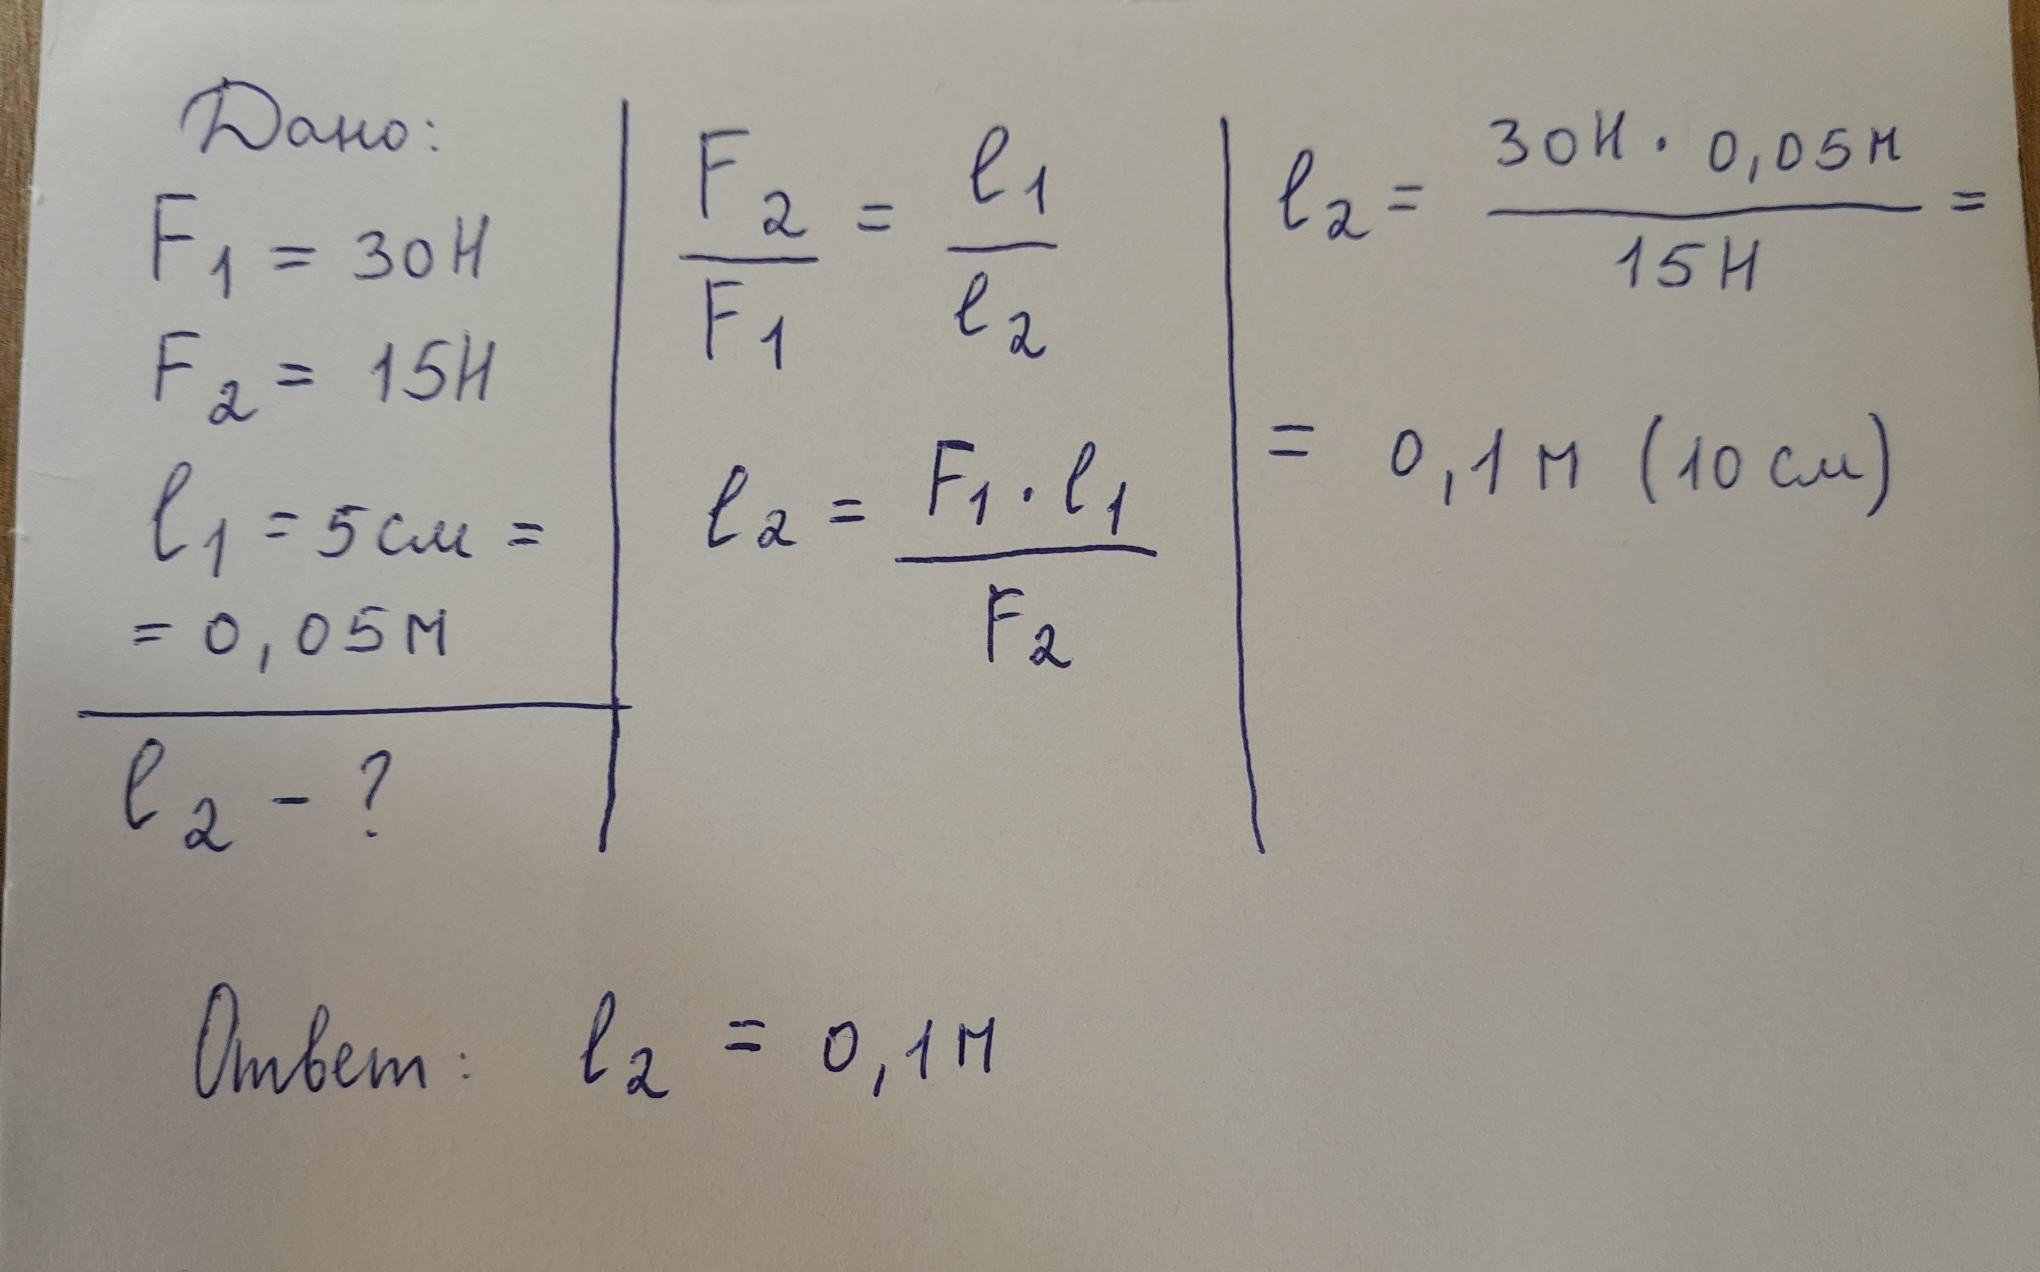 Дано:
F₁ = 30Н
F₂ = 15Н
l₁ = 5см =
= 0,05м
l₂ - ?
F₂/F₁ = l₁/l₂
l₂ = F₁·l₁/F₂
l₂ = 30Н · 0,05м/15Н =
= 0,1м (10см)
Ответ: l₂ = 0,1м